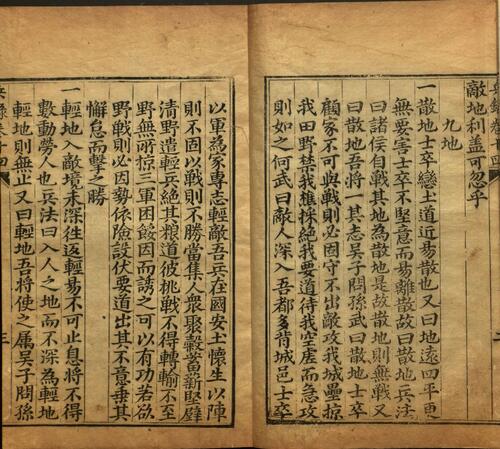 敵地利蓋可忽乎
九地
一散地士卒戀土道近易散也又曰地遠四平更
無要害士卒不堅意而易離散故曰散地兵法
曰諸侯自戰其地為散地是故散地則無戰又
曰散地吾將一其志吳子問孫武曰散地士卒
顧家不可與戰則必固守不出敵攻我城壘掠
我田野禁我樵採絕我要道待我空虛而急攻
則如之何武曰敵人深入吾都多背城邑士卒
以軍為家專志輕敵吾兵在國安土懷生以陣
則不固以戰則不勝當集人衆聚穀蓄薪堅壁
清野遣輕兵絕其粮道彼挑戰不得轉輸不至
野無所掠三軍困餒因而誘之可以有功若欲
野戰則必因勢依險設伏要道出其不意埀其
懈怠而擊之勝
一輕地入敵境未深徃返輕易不可止息將不得
數動勞人也兵法曰入人之地而不深為輕地
輕地則無止又曰輕地吾將使之屬吳子問孫
三